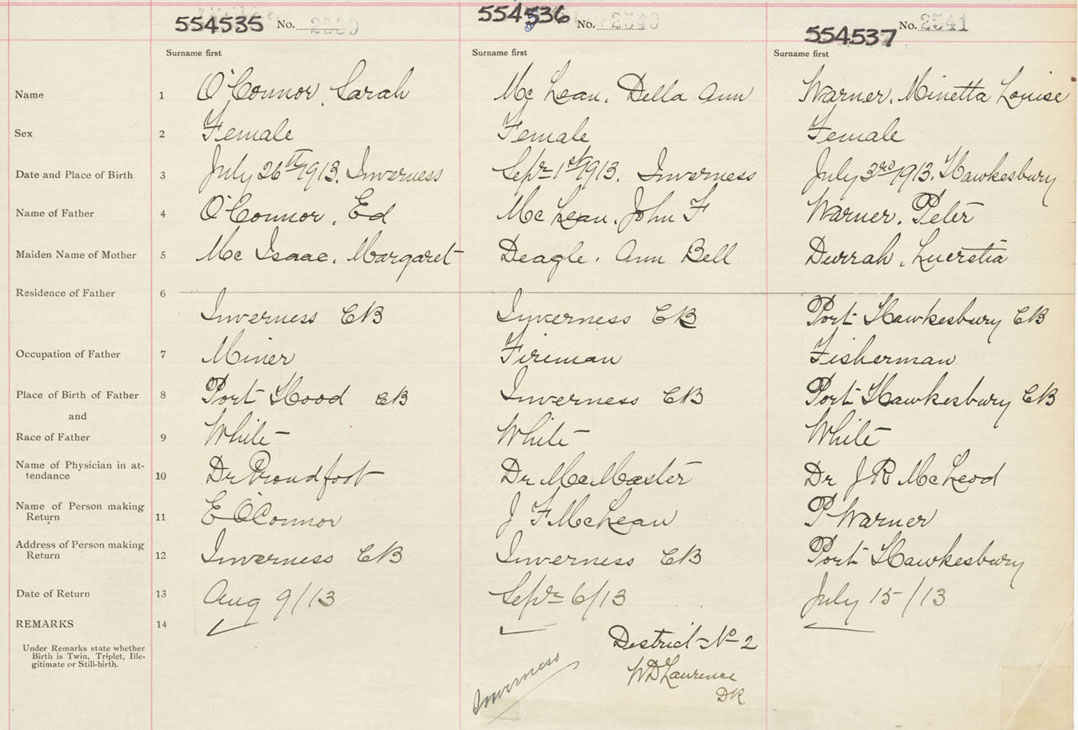 554535 No. 2539 554536 No. 2540 554537 No. 2541
Surname first Surname first Surname first
Name 1 O'Connor, Sarah Mc Lean, Della Ann Warner, Minetta Louise
Sex 2 Female Female Female
Date and Place of Birth 3 July 26th 1913, Inverness Sepr 1st 1913, Inverness July 3rd 1913, Hawkesbury
Name of Father 4 O'Connor, Ed Mc Lean, John F Warner, Peter
Maiden Name of Mother 5 Mc Isaac, Margaret Deagle, Ann Bell Durrah, Lucretia
Residence of Father 6
Inverness CB Inverness CB Port Hawkesbury CB
Occupation of Father 7 Miner Fireman Fisherman
Place of Birth of Father 8 Port Hood CB Inverness CB Port Hawkesbury CB
and
Race of Father 9 White White White
Name of Physician in at-
tendance 10 Dr Proudfoot Dr McMaster Dr J R McLeod
Name of Person making
Return 11 E O'Connor J F McLean P Warner
Address of Person making
Return 12 Inverness CB Inverness CB Port Hawkesbury
Date of Return 13 Aug 9/13 Sepr 6/13 July 15/13
REMARKS 14
Under Remarks state whether
Birth is Twin, Triplet, Ille-
gitimate or Still-birth.
District No 2
WD Lawrence
DR
Inverness